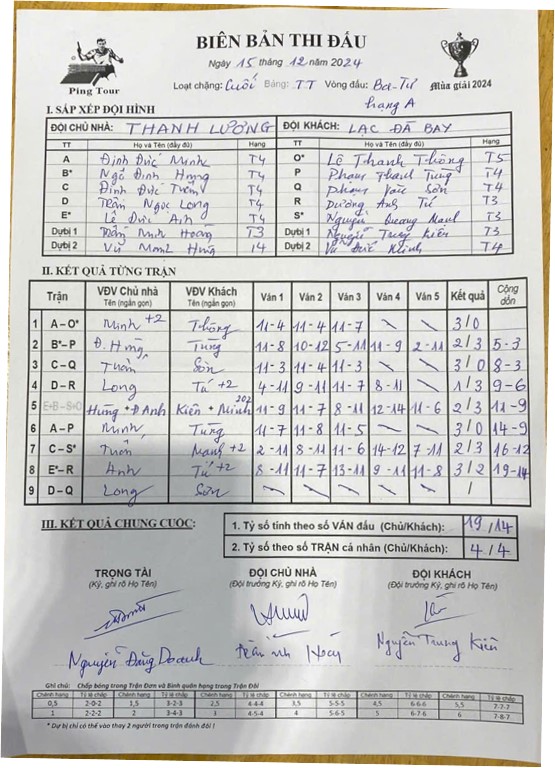 BIÊN BẢN THI ĐẤU
Ngày 15 tháng 12 năm 2024
Ping Tour
Loạt chặng: Cuối Bảng: TT Vòng đấu: Ba-Tư
hạng A
Mùa giải 2024
I. SẮP XẾP ĐỘI HÌNH
ĐỘI CHỦ NHÀ: THANH LƯƠNG ĐỘI KHÁCH: LẠC ĐÀ BAY
TT Họ và Tên (đầy đủ) Hạng TT Họ và Tên (đầy đủ) Hạng
A Đinh Đức Minh T4 O* Lê Thanh Thông T5
B* Ngô Đình Hưng T4 P Phạm Thanh Tùng T4
C Đinh Đức Tuấn T4 Q Phạm Sơn T4
D Trần Ngọc Long T4 R Dương Anh Tú T3
E* Lê Đức Anh T4 S* Nguyễn Quang Mạnh T3
Dựbị 1 Trần Minh Hoàng T3 Dựbị 1 Nguyễn Trung Kiên T3
Dựbị 2 Vũ Mạnh Hùng T4 Dựbị 2 Vũ Đức Minh T4
II. KẾT QUẢ TỪNG TRẬN
Trận VĐV Chủ nhà Tên (ngắn gọn) VĐV Khách Tên (ngắn gọn) Ván 1 Ván 2 Ván 3 Ván 4 Ván 5 Kết quả Cộng dồn
1 A – O* Minh +2 Thông 11-4 11-4 11-7 3/0
2 B*– P Đ. Hưng Tùng 11-8 10-12 5-11 11-9 2-11 2/3 5-3
3 C – Q Tuấn Sơn 11-3 11-4 11-3 3/0 8-3
4 D – R Long Tú +2 4-11 9-11 11-7 8-11 1/3 9-6
5 Hùng + Đ Anh Kiên + Minh 11-9 11-7 8-11 12-14 11-6 2/3 11-9
6 A – P Minh Tùng 11-7 11-8 11-5 3/0 14-9
7 C – S* Tuấn Mạnh +2 2-11 8-11 11-6 14-12 7-11 2/3 16-12
8 E*– R Anh Tú +2 8-11 11-7 13-11 9-11 11-8 3/2 19-14
9 D – Q Long Sơn /
III. KẾT QUẢ CHUNG CUỘC:
1. Tỷ số tính theo số VÁN đấu (Chủ/Khách): 19/14
2. Tỷ số theo số TRẬN cá nhân (Chủ/Khách): 4/4
TRỌNG TÀI ĐỘI CHỦ NHÀ ĐỘI KHÁCH
(Ký, ghi rõ Họ Tên) (Đội trưởng Ký, ghi rõ Họ Tên) (Đội trưởng Ký, ghi rõ Họ Tên)
Nguyễn Đăng Doanh Nguyễn Trung Kiên
Ghi chú: Chấp bóng trong Trận Đơn và Bình quân hạng trong Trận Đôi
Chênh hạng Tỷ lệ chấp Chênh hạng Tỷ lệ chấp Chênh hạng Tỷ lệ chấp Chênh hạng Tỷ lệ chấp Chênh hạng Tỷ lệ chấp Chênh hạng Tỷ lệ chấp
0,5 2-0-2 1,5 3-2-3 2,5 4-4-4 3,5 5-5-5 4,5 6-6-6 5,5 7-7-7
1 2-2-2 2 3-4-3 3 4-5-4 4 5-6-5 5 6-7-6 6 7-8-7
* Dự bị chỉ có thể vào thay 2 người trong trận đánh đôi !